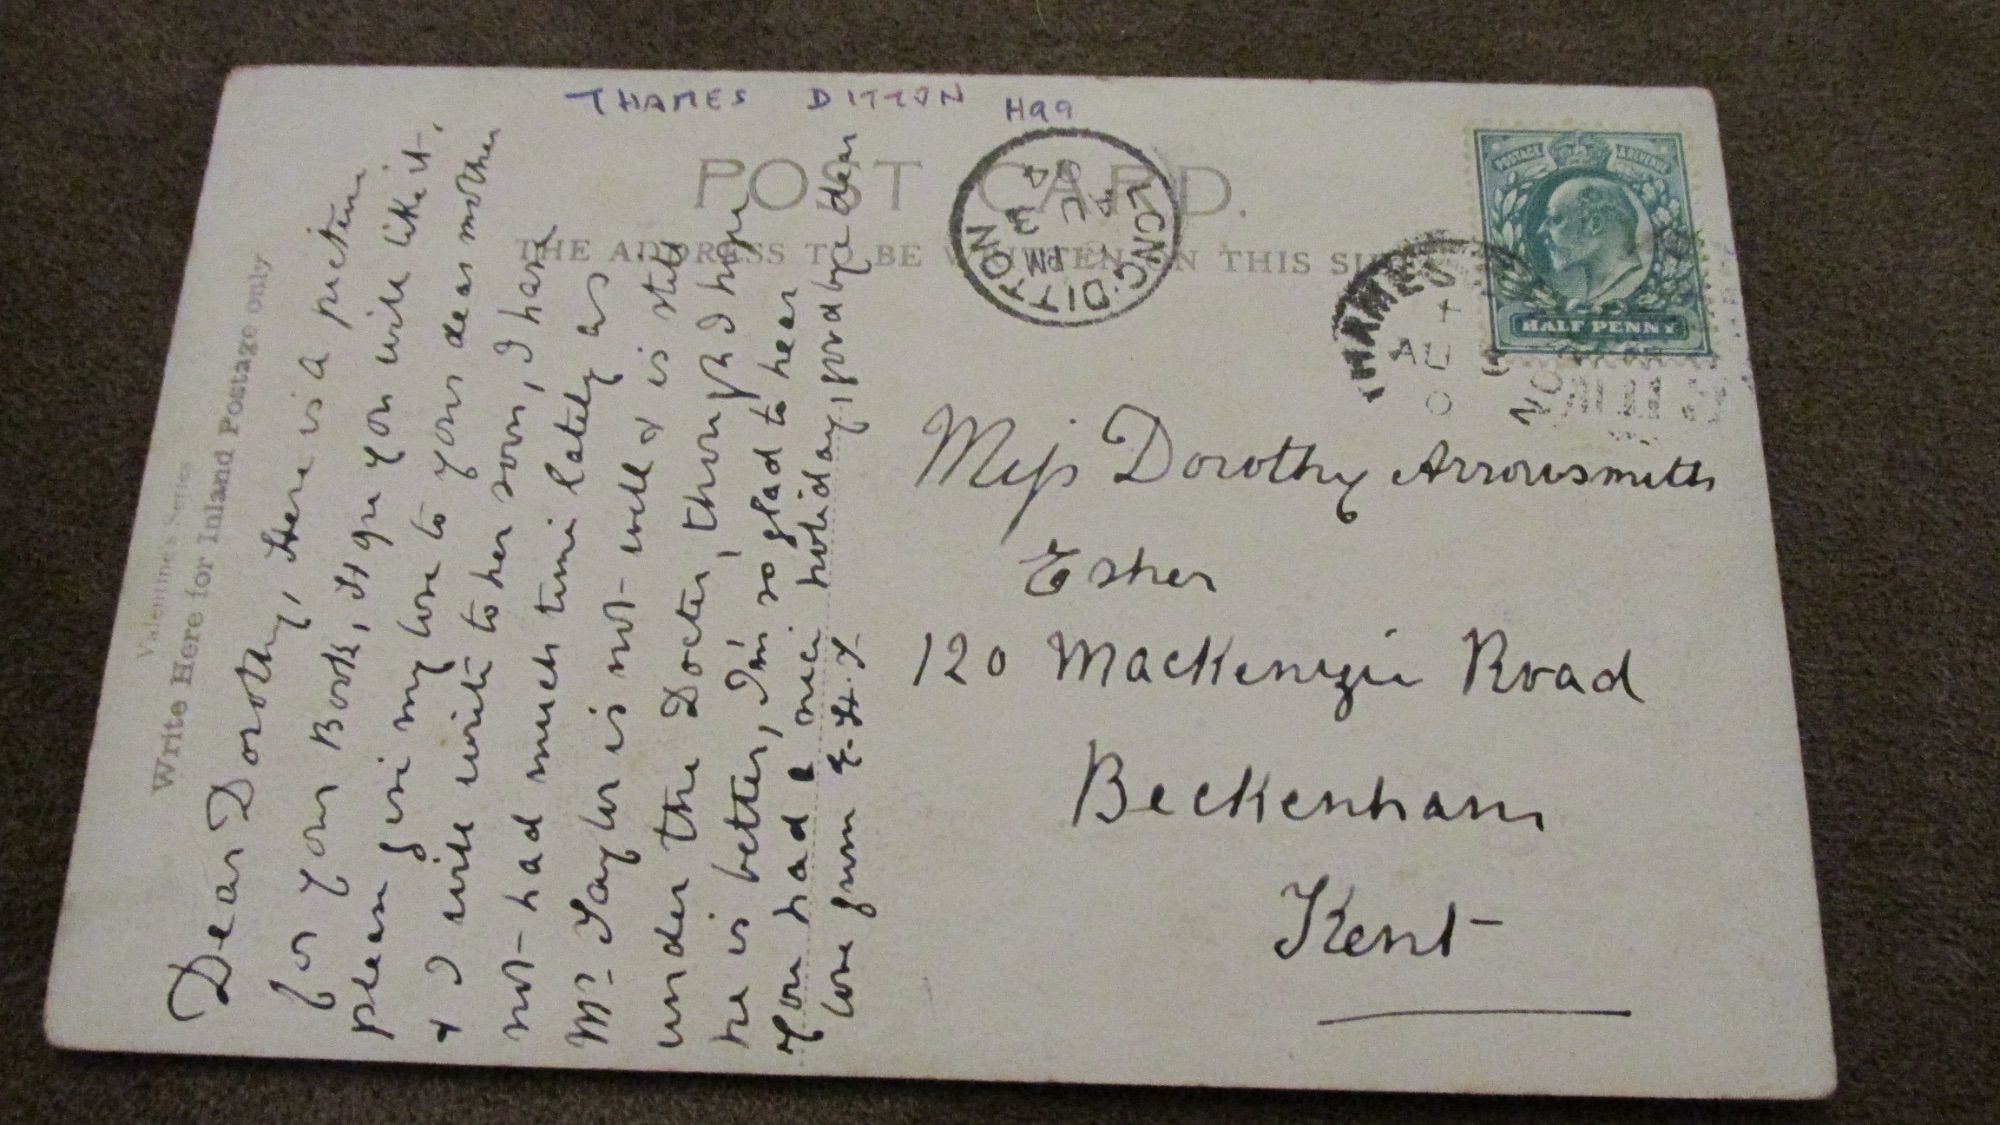 THAMES DITTON H99
POST CARD.
THE ADDRESS TO BE WRITTEN ON THIS SIDE
Valentine's Series
Write Here for Inland Postage only
Dear Dorothy, Here is a picture
for your Book, Hope you will like it,
please give my love to your dear mother
& I will write to her soon, I have
not had much time lately as
Mr Taylor is not well & is still
under the Doctor, though I hope
he is better, I'm so glad to hear
you had a nice holiday, good bye dear
love from E. H. T.
DITTON
PM
POSTAGE & REVENUE
HALF PENNY
THAMES
AU 4
0
Miss Dorothy Arrowsmith
Esher
120 Mackenzie Road
Beckenham
Kent